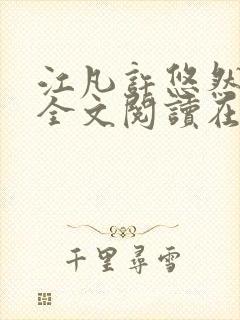 江凡許悠然
全文閱讀在
千里尋雪